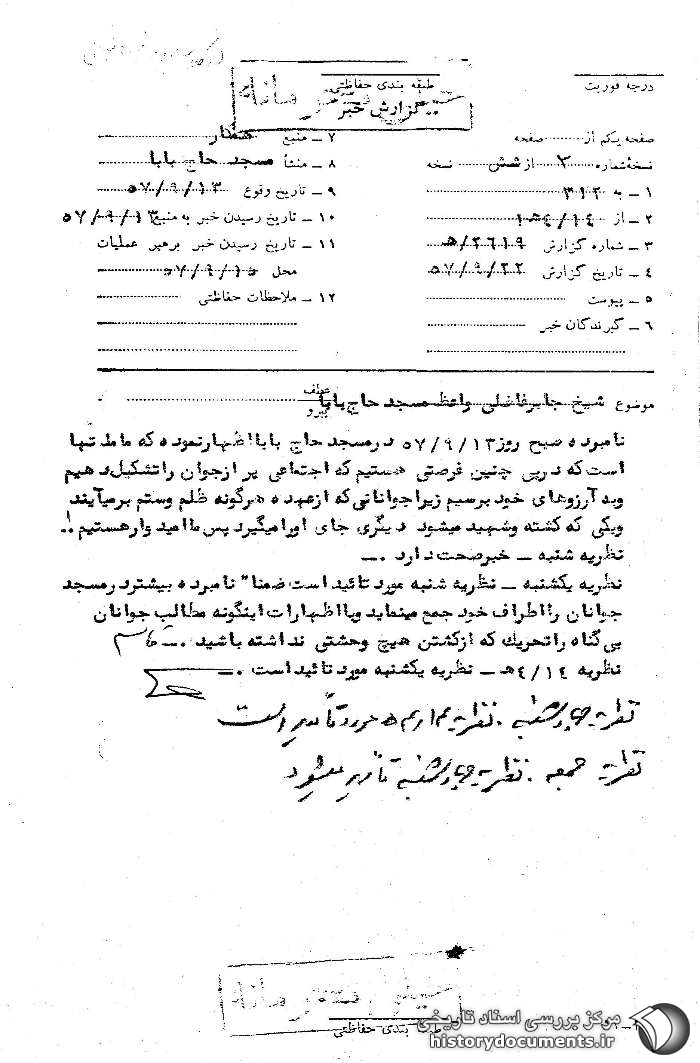 درجه فوریت
طبقه بندی حفاظتی
گزارش خبر
صفحه یکم از صفحه
نسخهٔ شماره ۲ از شش نسخه
۱ ـ به ۳۱۲
۲ ـ از ۴/۱۴ﻫ۱
۳ ـ شماره گزارش ۲۶۱۹/ﻫ
۴ ـ تاریخ گزارش ۵۷/۹/۲۲
۵ ـ پیوست
۶ ـ گیرندگان خبر
۷ ـ منبع همکار
۸ ـ منشأ مسجد حاج بابا
۹ ـ تاریخ وقوع ۵۷/۹/۱۳
۱۰ ـ تاریخ رسیدن خبر به منبع ۵۷/۹/۱۳
۱۱ ـ تاریخ رسیدن خبر برهبر عملیات
محل ۵۷/۹/۱۵
۱۲ ـ ملاحظات حفاظتی
موضوع شیخ جابر فاضلی واعظ مسجد حاج بابا
عطف
پیرو
نامبرده صبح روز ۵۷/۹/۱۳ در مسجد حاج بابا اظهار نموده که ما مدتها
است که در پی چنین فرصتی هستیم که اجتماعی پر از جوان را تشکیل دهیم
وبه آرزوهای خود برسیم زیرا جوانانی که از عهده هرگونه ظلم وستم برمیآیند
ویکی که کشته وشهید میشود دیگری جای اورا میگیرد پس ما امید وار هستیم !.
نظریه شنبه ـ خبر صحت دارد .ـ
نظریه یکشنبه ـ نظریه شنبه مورد تائید است ضمنا" نامبرده بیشتر در مسجد
جوانان را اطراف خود جمع مینماید وبا اظهارات اینگونه مطالب جوانان
بی گناه را تحریك که از کشتن هیچ وحشتی نداشته باشید .ـ
نظریه ۴/۱۴ﻫ ـ نظریه یکشنبه مورد تائید است .ـ
نظریه چهارشنبه . نظریه مورد تأیید است
نظریه جمعه . نظریه چهارشنبه تأیید میشود
طبقه بندی حفاظتی
مرکز بررسی اسناد تاریخی
historydocuments.ir